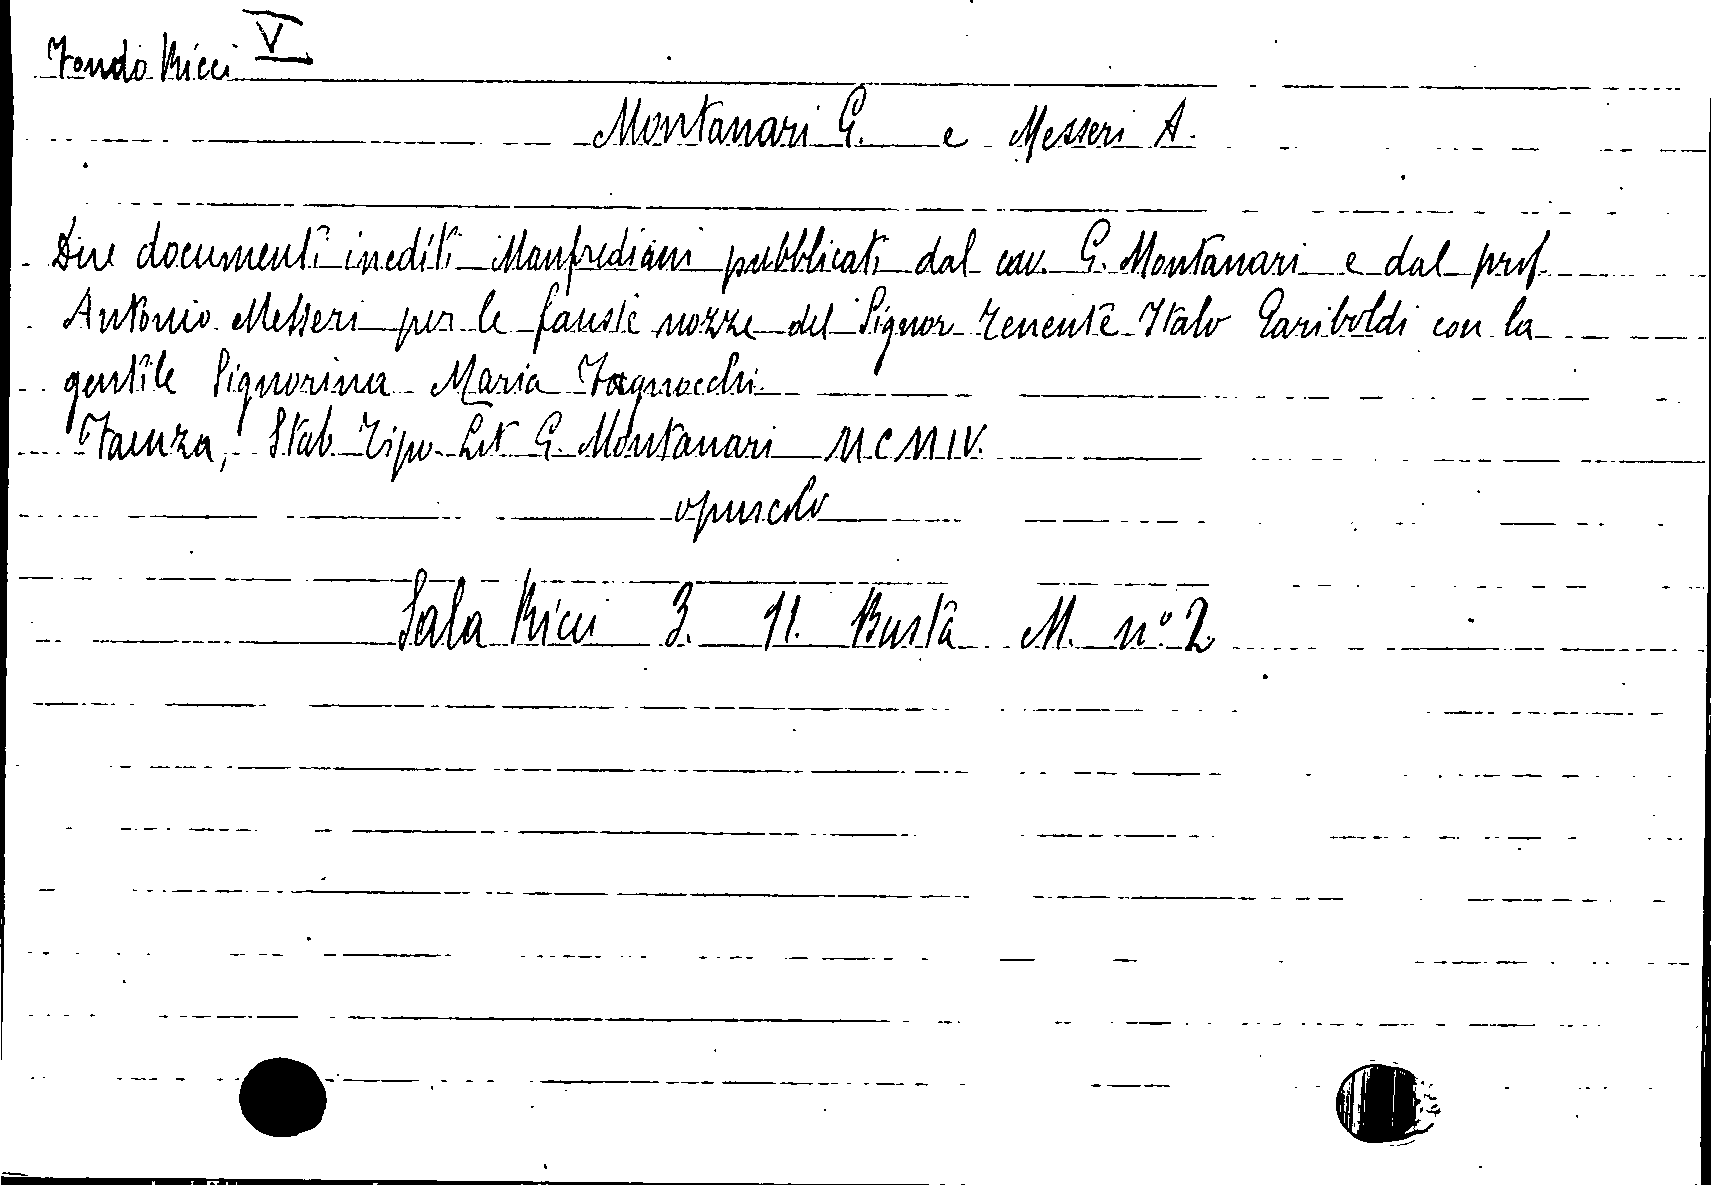 Fondo Ricci V
Montanari G. e Messeri A.
Due documenti inediti Manfrediani pubblicati dal cav. G. Montanari e dal prof.
Antonio Messeri per le fauste nozze del Signor Tenente Italo Gariboldi con la
gentile Signorina Maria Tagnocchi.
Faenza, Stab. Tipo-Lit G. Montanari MCMIV.
opuscolo
Sala Ricci 3. 11. Busta M. n° 2